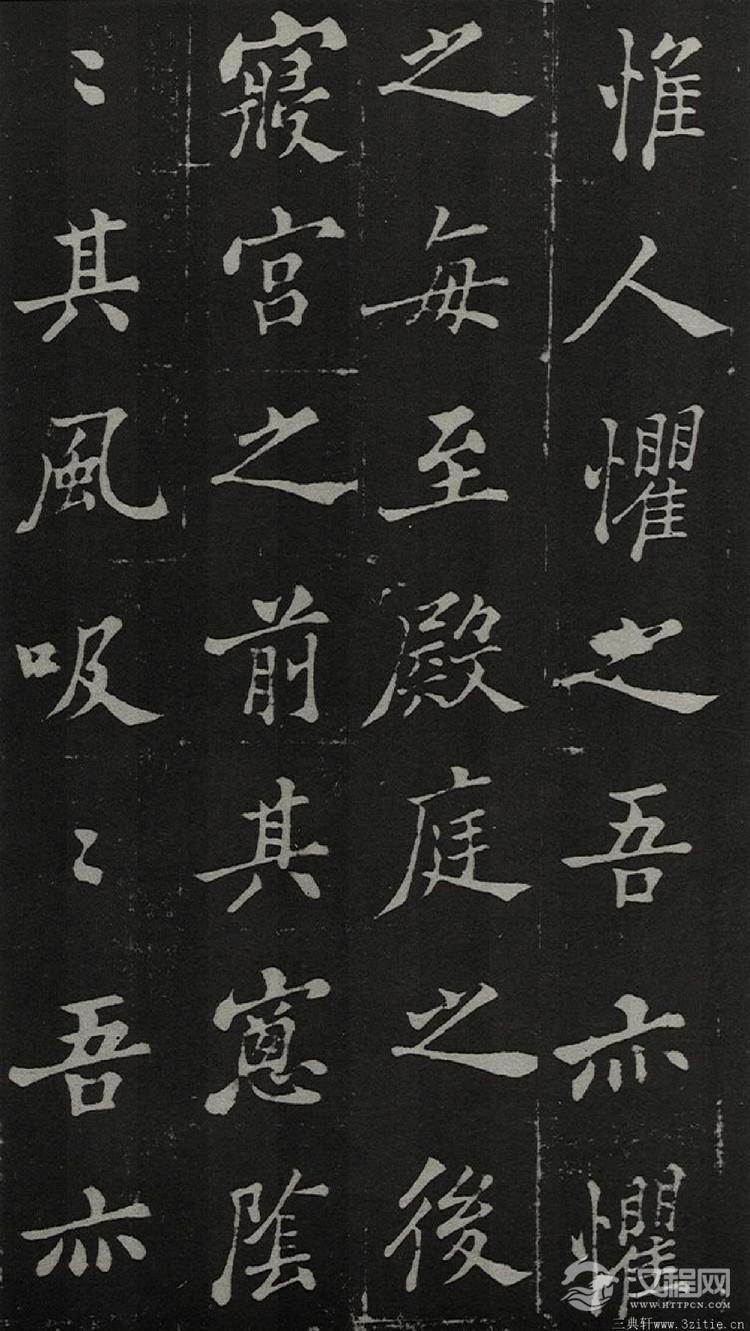 惟人懼之吾亦懼
之每至殿庭之後
寢宫之前其窻陰
〻其風吸〻吾亦
汉程网
WWW.HTTPCN.COM
三典轩www.3zitie.cn